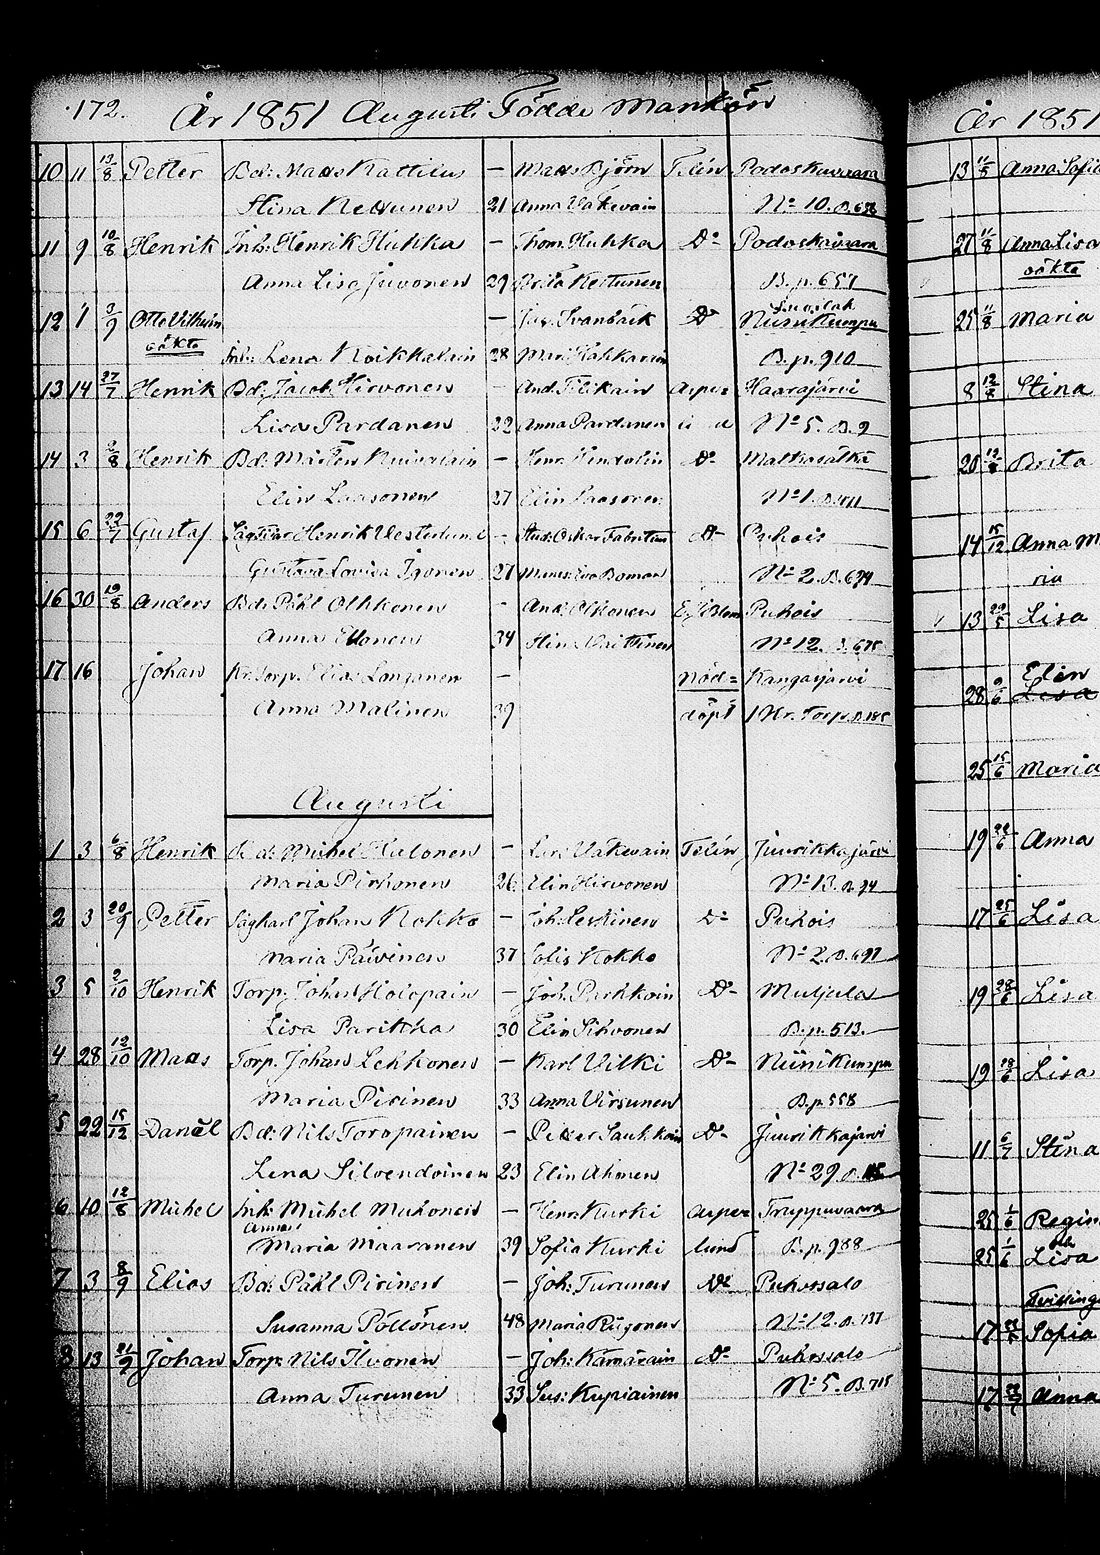 172. År 1851 Augusti Födde Mankön
10 11 13/8 Petter Bd: Mads Kattilus — Mads Björn Telén Podoskavaara
Stina Kettunen 21 Anna Väkeväin No 10. B. 658
11 9 10/8 Henrik Inh: Henrik Huhka — Thom: Huhka Do Podoskavaara
Anna Lisa Juvonen 29 Brita Kettunen B. p. 657
12 1 3/9 Otto Vilhelm — Jac: Svanbäck Do Niinikumpu
oäkta Inh: Lena Koikkalain 28 Mari Kähkarin B. p. 910
13 14 27/7 Henrik Bd: Jacob Hirvonen — And: Filikain Asper Haarajärvi
Lisa Pardanen 22 Anna Pardanen No 5. B. 9
14 3 2/8 Henrik Bd: Mårten Kuivalain — Henr: Hindelin Do Matkasälkä
Elin Laasonen 27 Elin Laasonen No 1.
15 6 22/7 Gustaf Henrik Vesterlund — Stud: Oskar Fabritius Do Puhois
Gustava Lovisa Igonen 27 Mams: Eva Boman No 2. B. 694
16 30 19/8 Anders Bd: Påhl Olkkonen — And: Olkonen E. J. Blom Puhois
Anna Ellonen 34 Stina Väittinen No 12. B. 675
17 16 Johan Kr. Torp. Elias Longanen — Nöd= Kangasjärvi
Anna Malinen 39 döpt 1 Kr. Torp. B. 185
Augusti
1 3 6/8 Henrik Bd: Michel Hulonen — Väkeväin Telén Juurikkajärvi
Maria Pirhonen 26 Elin Hirvonen No 13. B. 94
2 3 20/9 Petter Sågkarl Johan Kokko — Joh: Leskinen Do Puhois
Maria Päivinen 37 Sofia Kokko No 2. B. 697
3 5 2/10 Henrik Torp. Johan Holopain — Joh: Parkkoin Do Muljula
Lisa Parikka 30 Elin Sihvonen B. p. 513.
4 28 12/10 Mads Torp. Johan Lehkonen — Karl Vilki Do Niinikumpu
Maria Pirinen 33 Anna Virsunen B. p. 558
5 22 15/12 Daniel Bd: Nils Toropainen — Petter Saukkoin Do Juurikkajärvi
Lena Silvendoinen 23 Elin Ahonen No 29
6 10 12/8 Michel Inh: Michel Muhonen — Henr: Kurki Asper Truppuvaara
Anna
Maria Maaranen 39 Sofia Kurki lund B. p. 988
7 3 8/9 Elias Bd: Påhl Pirinen — Joh: Turunen Do Puhossalo
Susanna Pöllönen 48 Maria Rügonen No 12. B. 737
8 13 21/9 Johan Torp: Nils Ihvonen — Joh: Kämäräin Do Puhossalo
Anna Turunen 33 Sus: Kupiainen No 5. B. 715
År 1851
13 11/5 Anna Sofia
27 11/8 Anna Lisa
oäkta
25 11/8 Maria
8 12/8 Stina
20 19/8 Brita
14 15/12 Anna Ma
ria
13 29/5 Lisa
Elin
28 9/6 Lisa
25 15/6 Maria
19 22/6 Anna
17 25/6 Lisa
19 28/6 Lisa
19 19/8 Lisa
11 6/7 Stina
25 1/6 Regin
och
25 1/6 Lisa
Tvilling
17 Sofia
17 Anna